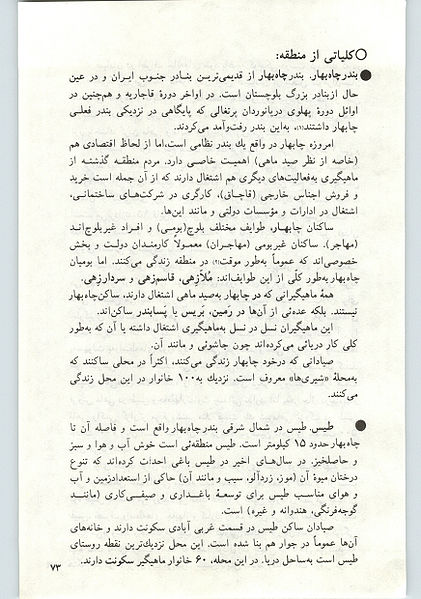 کلیاتی از منطقه:
● بندرچاه‌بهار. بندر چاه‌بهار از قدیمی‌ترین بنادر جنوب ایران و در عین
حال ازبنادر بزرگ بلوچستان است. در اواخر دورهٔ قاجاریه و همچنین در
اوائل دورهٔ پهلوی دریانوردان پرتغالی که پایگاهی در نزدیکی بندر فعلی
چابهار داشتند(۱)، به‌این بندر رفت‌وآمد می‌کردند.
امروزه چابهار در واقع یك بندر نظامی است،اما از لحاظ اقتصادی هم
(خاصه از نظر صید ماهی) اهمیت خاصی دارد. مردم منطقه گذشته از
ماهیگیری به‌فعالیت‌های دیگری هم اشتغال دارند که از آن جمله است خرید
و فروش اجناس خارجی (قاچاق)، کارگری در شرکت‌های ساختمانی،
اشتغال در ادارات و مؤسسات دولتی و مانند این‌ها.
ساکنان چابهـار، طوایف مختلف بلوچ(بومی) و افـراد غیربلوچ‌انـد
(مهاجر). ساکنان غیربومی (مهاجران) معمولاً کارمندان دولت و بخش
خصوصی‌اند که عموماً به‌طور موقت(۲) در منطقه زندگی می‌کنند. اما بومیان
چاه‌بهار به‌طور کلّی از این طوایف‌اند: مُلازهی، قاسم‌زهی و سردارزهی.
همهٔ ماهیگیرانی که در چابهار به‌صید ماهی اشتغال دارند، ساکن‌چاه‌بهار
نیستند. بلکه عده‌ئی از آن‌ها در رَمین، بَریس یا پَسابندر ساکن‌اند.
این ماهیگیران نسل در نسل به‌ماهیگیری اشتغال داشته یا آن که به‌طور
کلی کار دریائی می‌کرده‌اند چون جاشوئی و مانند آن.
صیادانی که‌درخود چابهار زندگی می‌کنند، اکثراً در محلی ساکنند که
به‌محلهٔ «شیری‌ها» معروف است. نزدیك به۱۰۰ خانوار در این محل زندگی
می‌کنند.
● طیس. طیس در شمال شرقی بندرچاه‌بهار واقع است و فاصله آن تا
چاه‌بهارحدود ۱۵ کیلومتر است. طیس منطقه‌ئی است خوش آب و هوا و سبز
و حاصلخیز. در سال‌های اخیر در طیس باغی احداث کرده‌اند که تنوع
درختان میوهٔ آن (موز، زردآلو، سیب و مانند آن) حاکی از استعدادزمین و آب
و هوای مناسب طیس برای توسعهٔ باغـداری و صیفی‌کاری (ماننـد
گوجه‌فرنگی، هندوانه و غیره) است.
صیادان ساکن طیس در قسمت غربی آبادی سکونت دارند و خانه‌های
آن‌ها عموماً در جوار هم بنا شده است. این محل نزدیك‌ترین نقطه روستای
طیس است به‌ساحل دریا. در این محله، ۶۰ خانوار ماهیگیر سکونت دارند.
۷۳